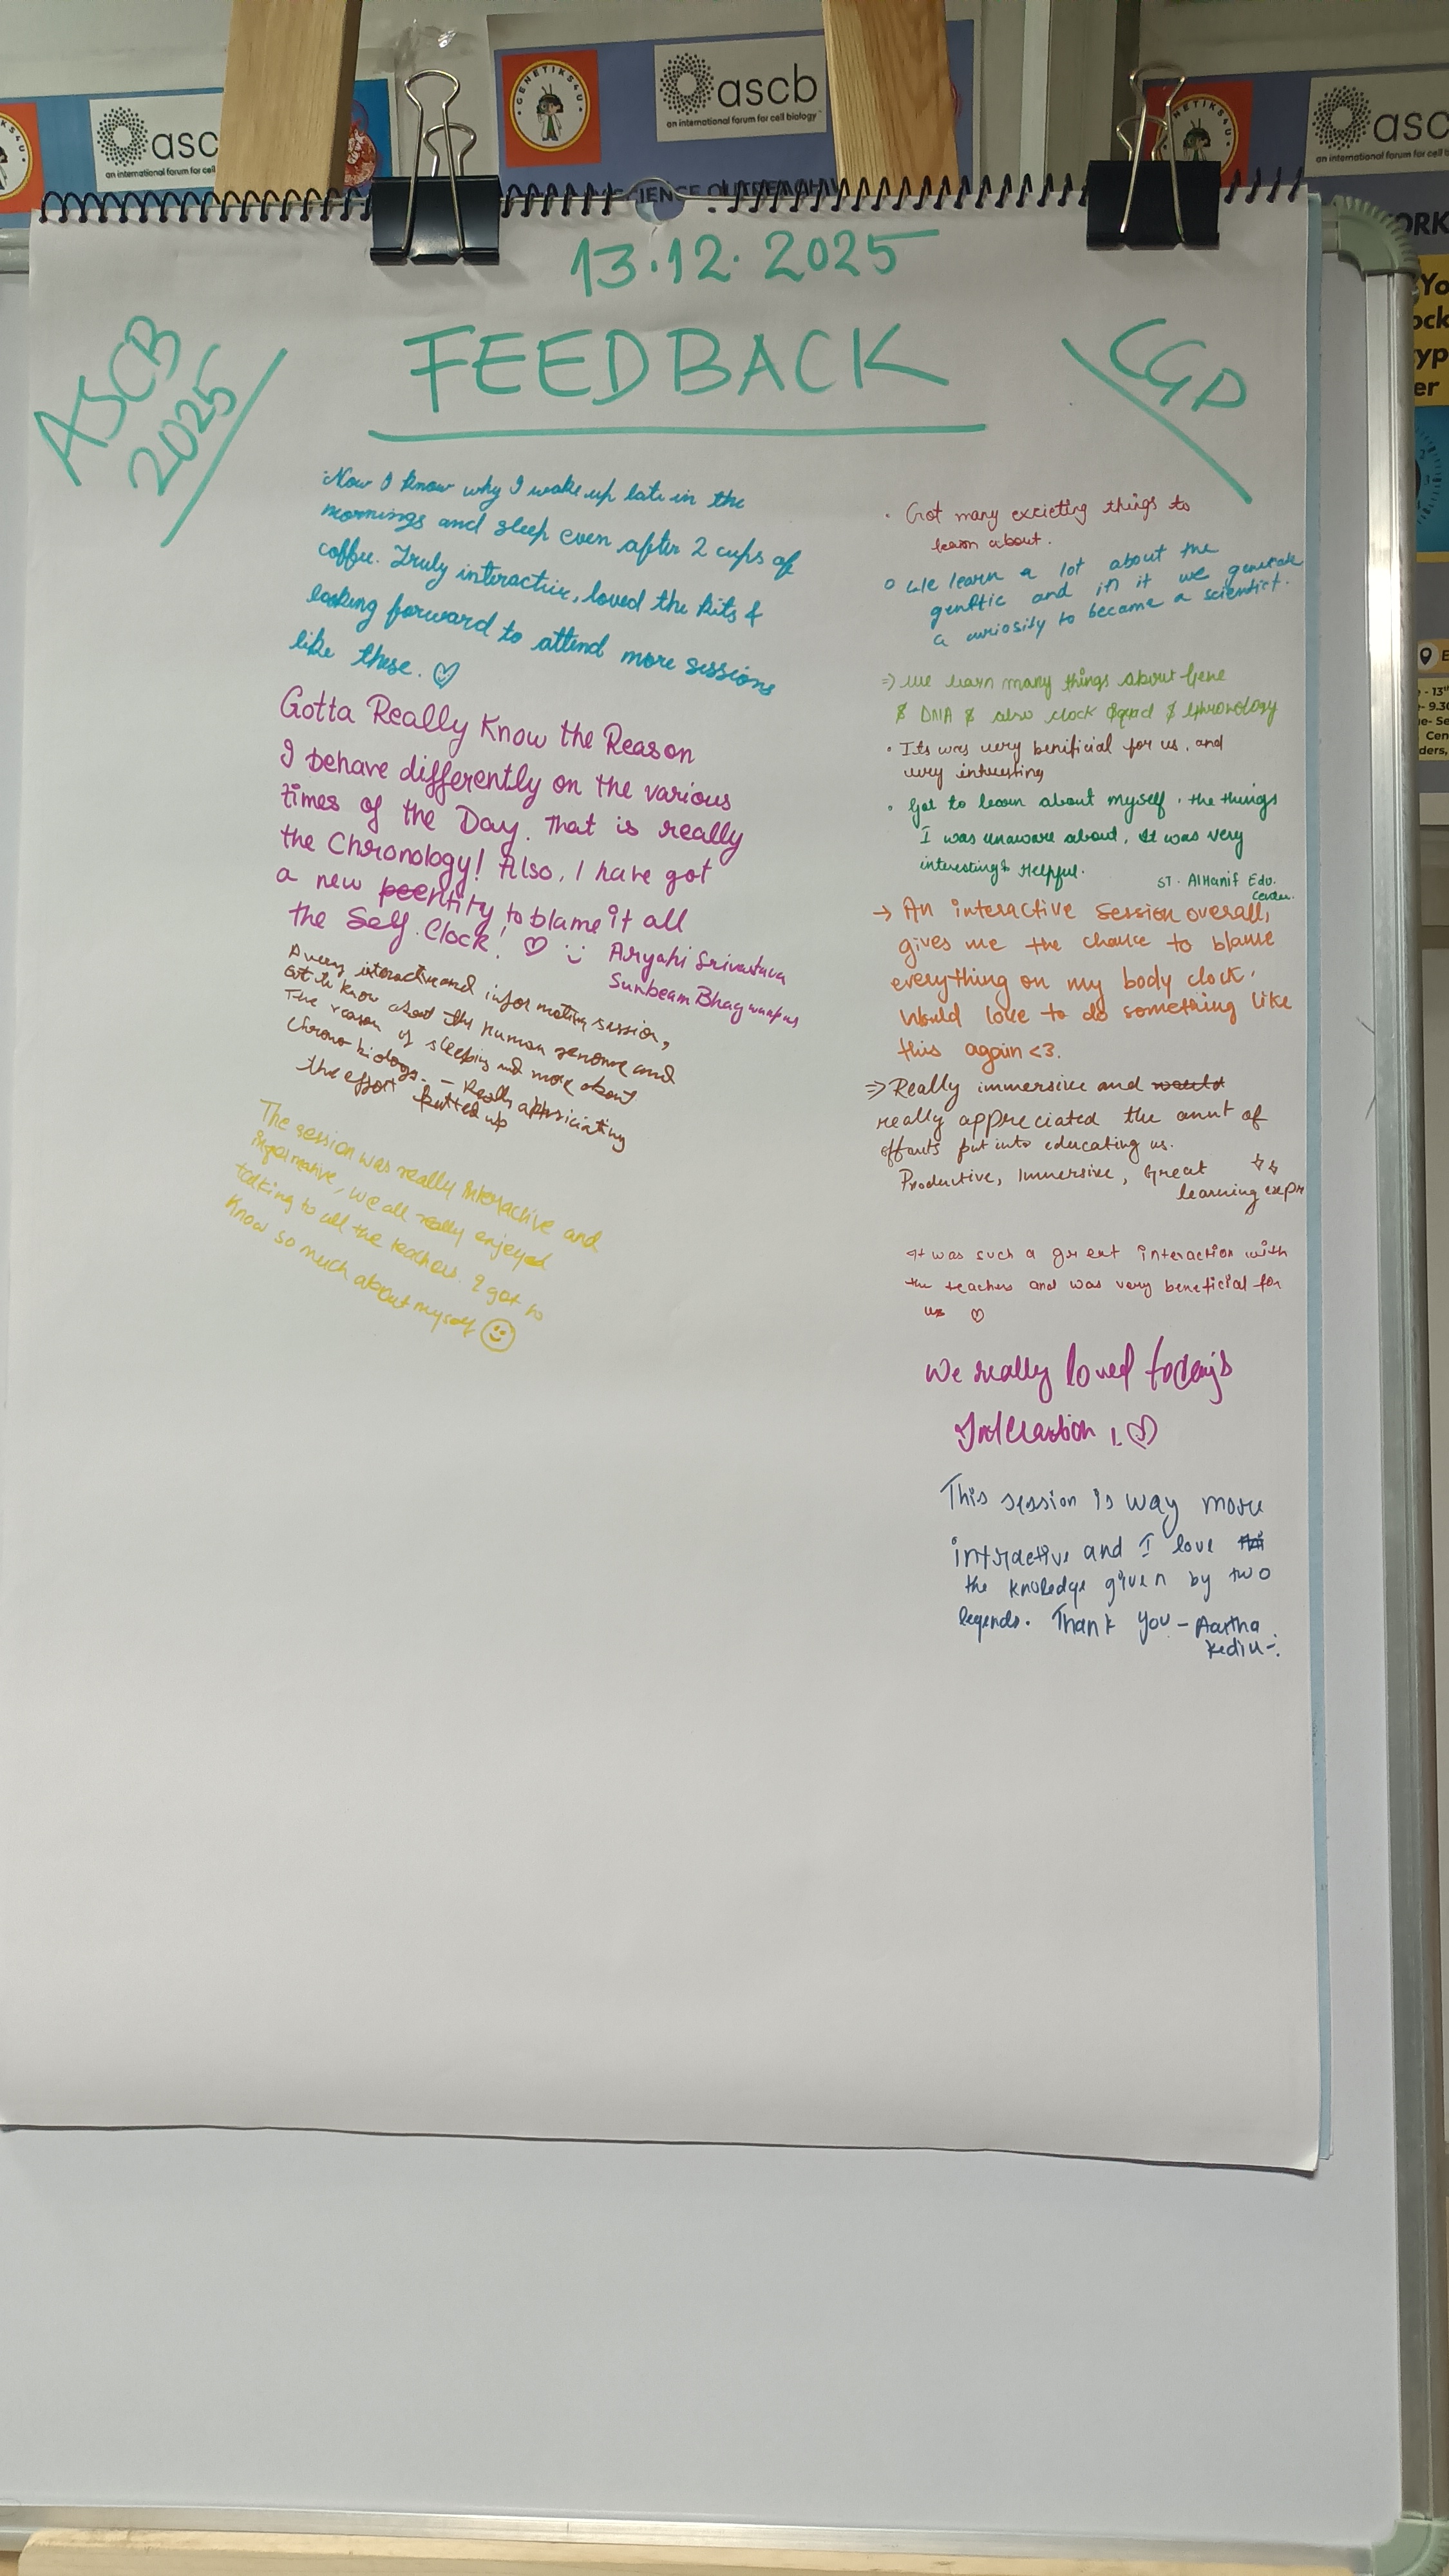 GENETIKS4U
ascb
an international forum for cell biology
ascb
an international forum for cell biology
asc
an international forum for cell
SCIENCE OUTREACH
ORK
13.12.2025
ASCB
2025
FEEDBACK
CGD
Now I know why I wake up late in the
mornings and sleep even after 2 cups of
coffee. Truly interactive, loved the kits &
looking forward to attend more sessions
like these. ♡
Gotta Really Know the Reason
I behave differently on the various
times of the Day. That is really
the Chronology! Also, I have got
a new entity to blame it all
the Self Clock! ♡ :)
Aryahi Srivastava
Sunbeam Bhagwanpur
A very interactive and informative session,
Got to know about the human genome and
The reason of sleeping and more about
Chrono biology. – Really appriciating
the effort putted up
The session was really interactive and
informative, we all really enjoyed
talking to all the teachers. I got to
know so much about myself ☺
• Got many excieting things to
learn about.
o We learn a lot about the
genetic and in it we generate
a curiosity to became a scientict.
⇒ We learn many things about Gene
& DNA & also clock & chronology
• Its was very benificial for us, and
very intresting
• Got to learn about myself, the things
I was unaware about, It was very
interesting & Helpful.
ST. AlHanif Edu.
Center.
→ An interactive session overall,
gives me the chance to blame
everything on my body clock.
Would love to do something like
this again <3.
⇒ Really immersive and would
really appreciated the amnt of
efforts put into educating us.
Productive, Immersive, Great
learning expr
It was such a great interaction with
the teachers and was very beneficial for
us ♡
We really loved today's
Interaction ! ♡
This session is way more
interactive and I love
the knoledge given by two
legends. Thank you – Aartha
Kedia